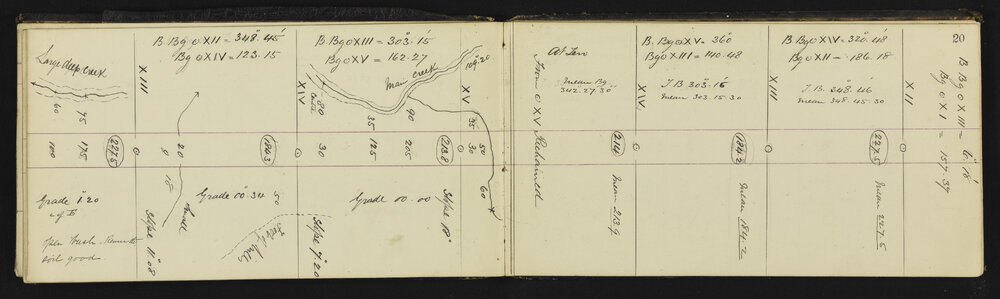 B. Bg ⊙ XII = 348°.45'
Bg ⊙ XIV = 123.15
B. Bg ⊙ XIII = 303°.15'
Bg ⊙ XV = 162.27
Large deep creek
XIII
60
75
100
175
227.5
20
18
small
Grade 1.20
open bush.
soil good.
Slope 11°.08
Grade 00°.34
50
184.3
XIV
80
30
Foot of hills
Slope 7°.20
Main creek
109.20
35
90
125
205
213.8
Grade 00.00
Slope 18°
XV
35
50
30
60
20
At
from ⊙ XV Rechained
mean Bg
342.27.30
B. Bg ⊙ XV = 360°
Bg ⊙ XIII = 140.48
XIV
F.B. 303°.16'
mean 303.15.30
214
mean 213.9
B. Bg ⊙ XIV = 320°.48'
Bg ⊙ XII = 186.18
XIII
F.B. 348.46
mean 348.45.30
184.2
mean 184.2
XII
227.5
mean 227.5
B Bg ⊙ XIII = 6°.18'
Bg ⊙ XI = 157.37